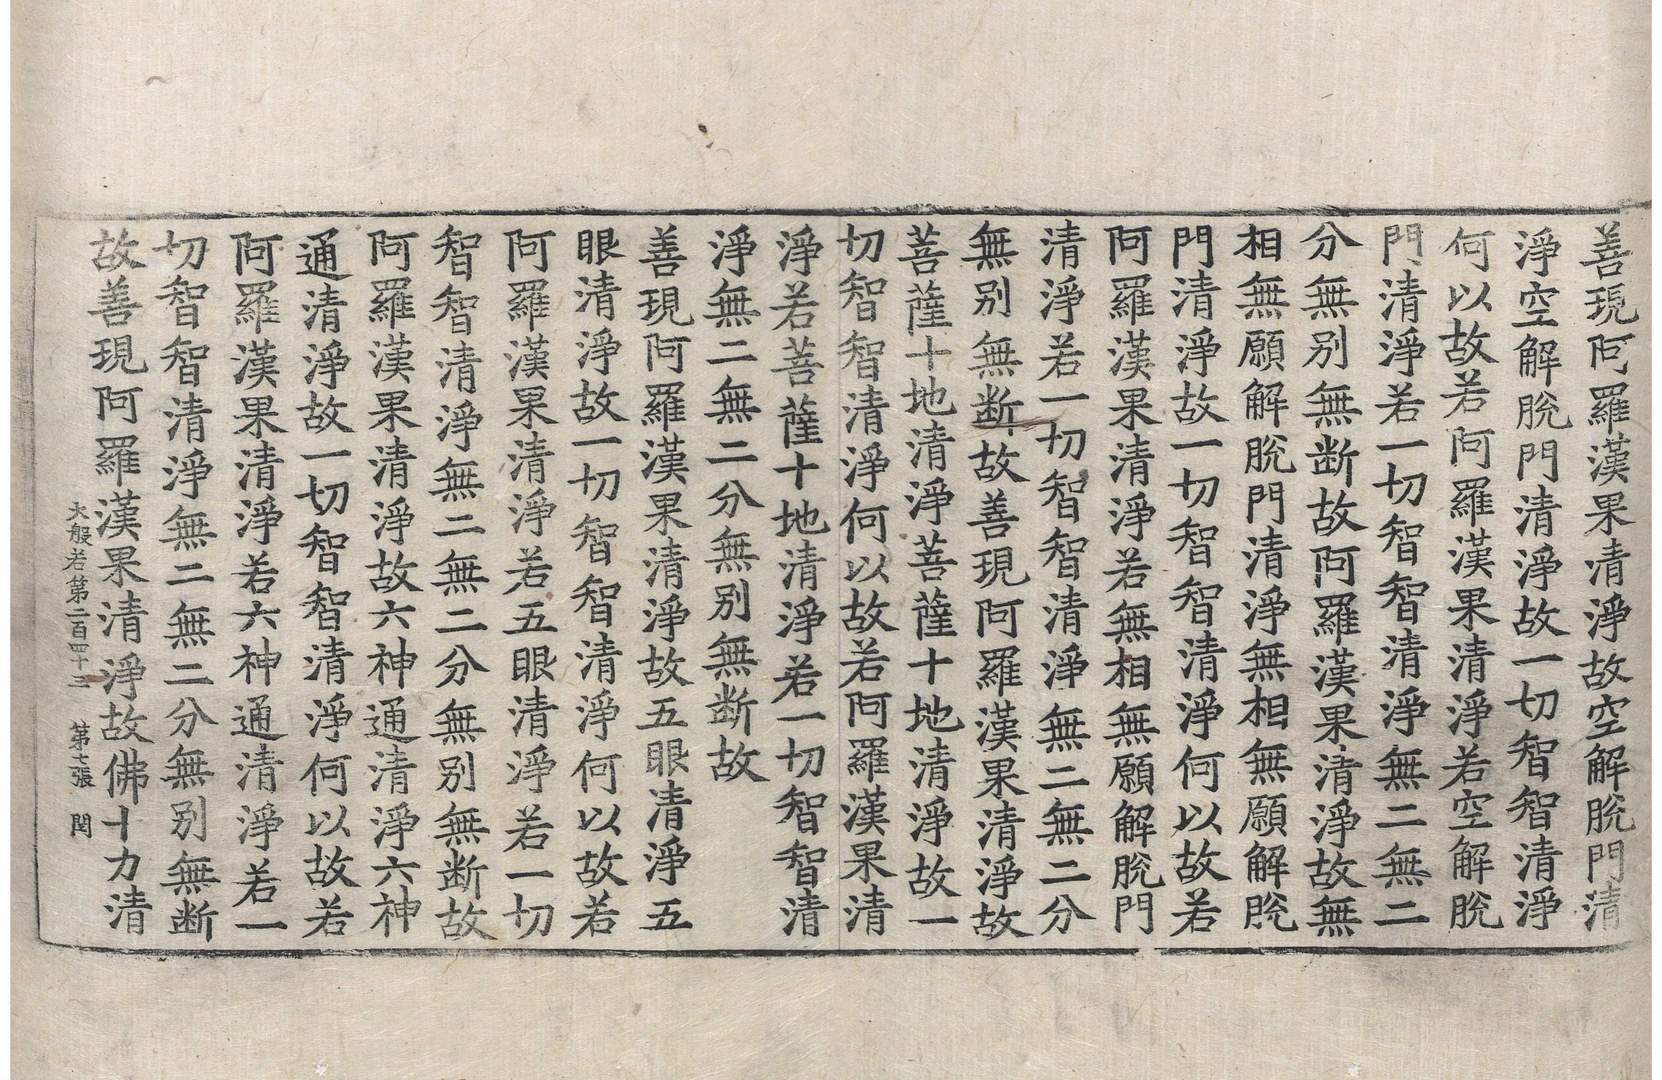 善現阿羅漢果清淨故空解脫門清
淨空解脫門清淨故一切智智清淨
何以故若阿羅漢果清淨若空解脫
門清淨若一切智智清淨無二無二
分無別無断故阿羅漢果清淨故無
相無願解脫門清淨無相無願解脫
門清淨故一切智智清淨何以故若
阿羅漢果清淨若無相無願解脫門
清淨若一切智智清淨無二無二分
無別無断故善現阿羅漢果清淨故
菩薩十地清淨菩薩十地清淨故一
切智智清淨何以故若阿羅漢果清
淨若菩薩十地清淨若一切智智清
淨無二無二分無別無断故
善現阿羅漢果清淨故五眼清淨五
眼清淨故一切智智清淨何以故若
阿羅漢果清淨若五眼清淨若一切
智智清淨無二無二分無別無断故
阿羅漢果清淨故六神通清淨六神
通清淨故一切智智清淨何以故若
阿羅漢果清淨若六神通清淨若一
切智智清淨無二無二分無別無断
故善現阿羅漢果清淨故佛十力清
大般若第二百四十三 第七張 閏